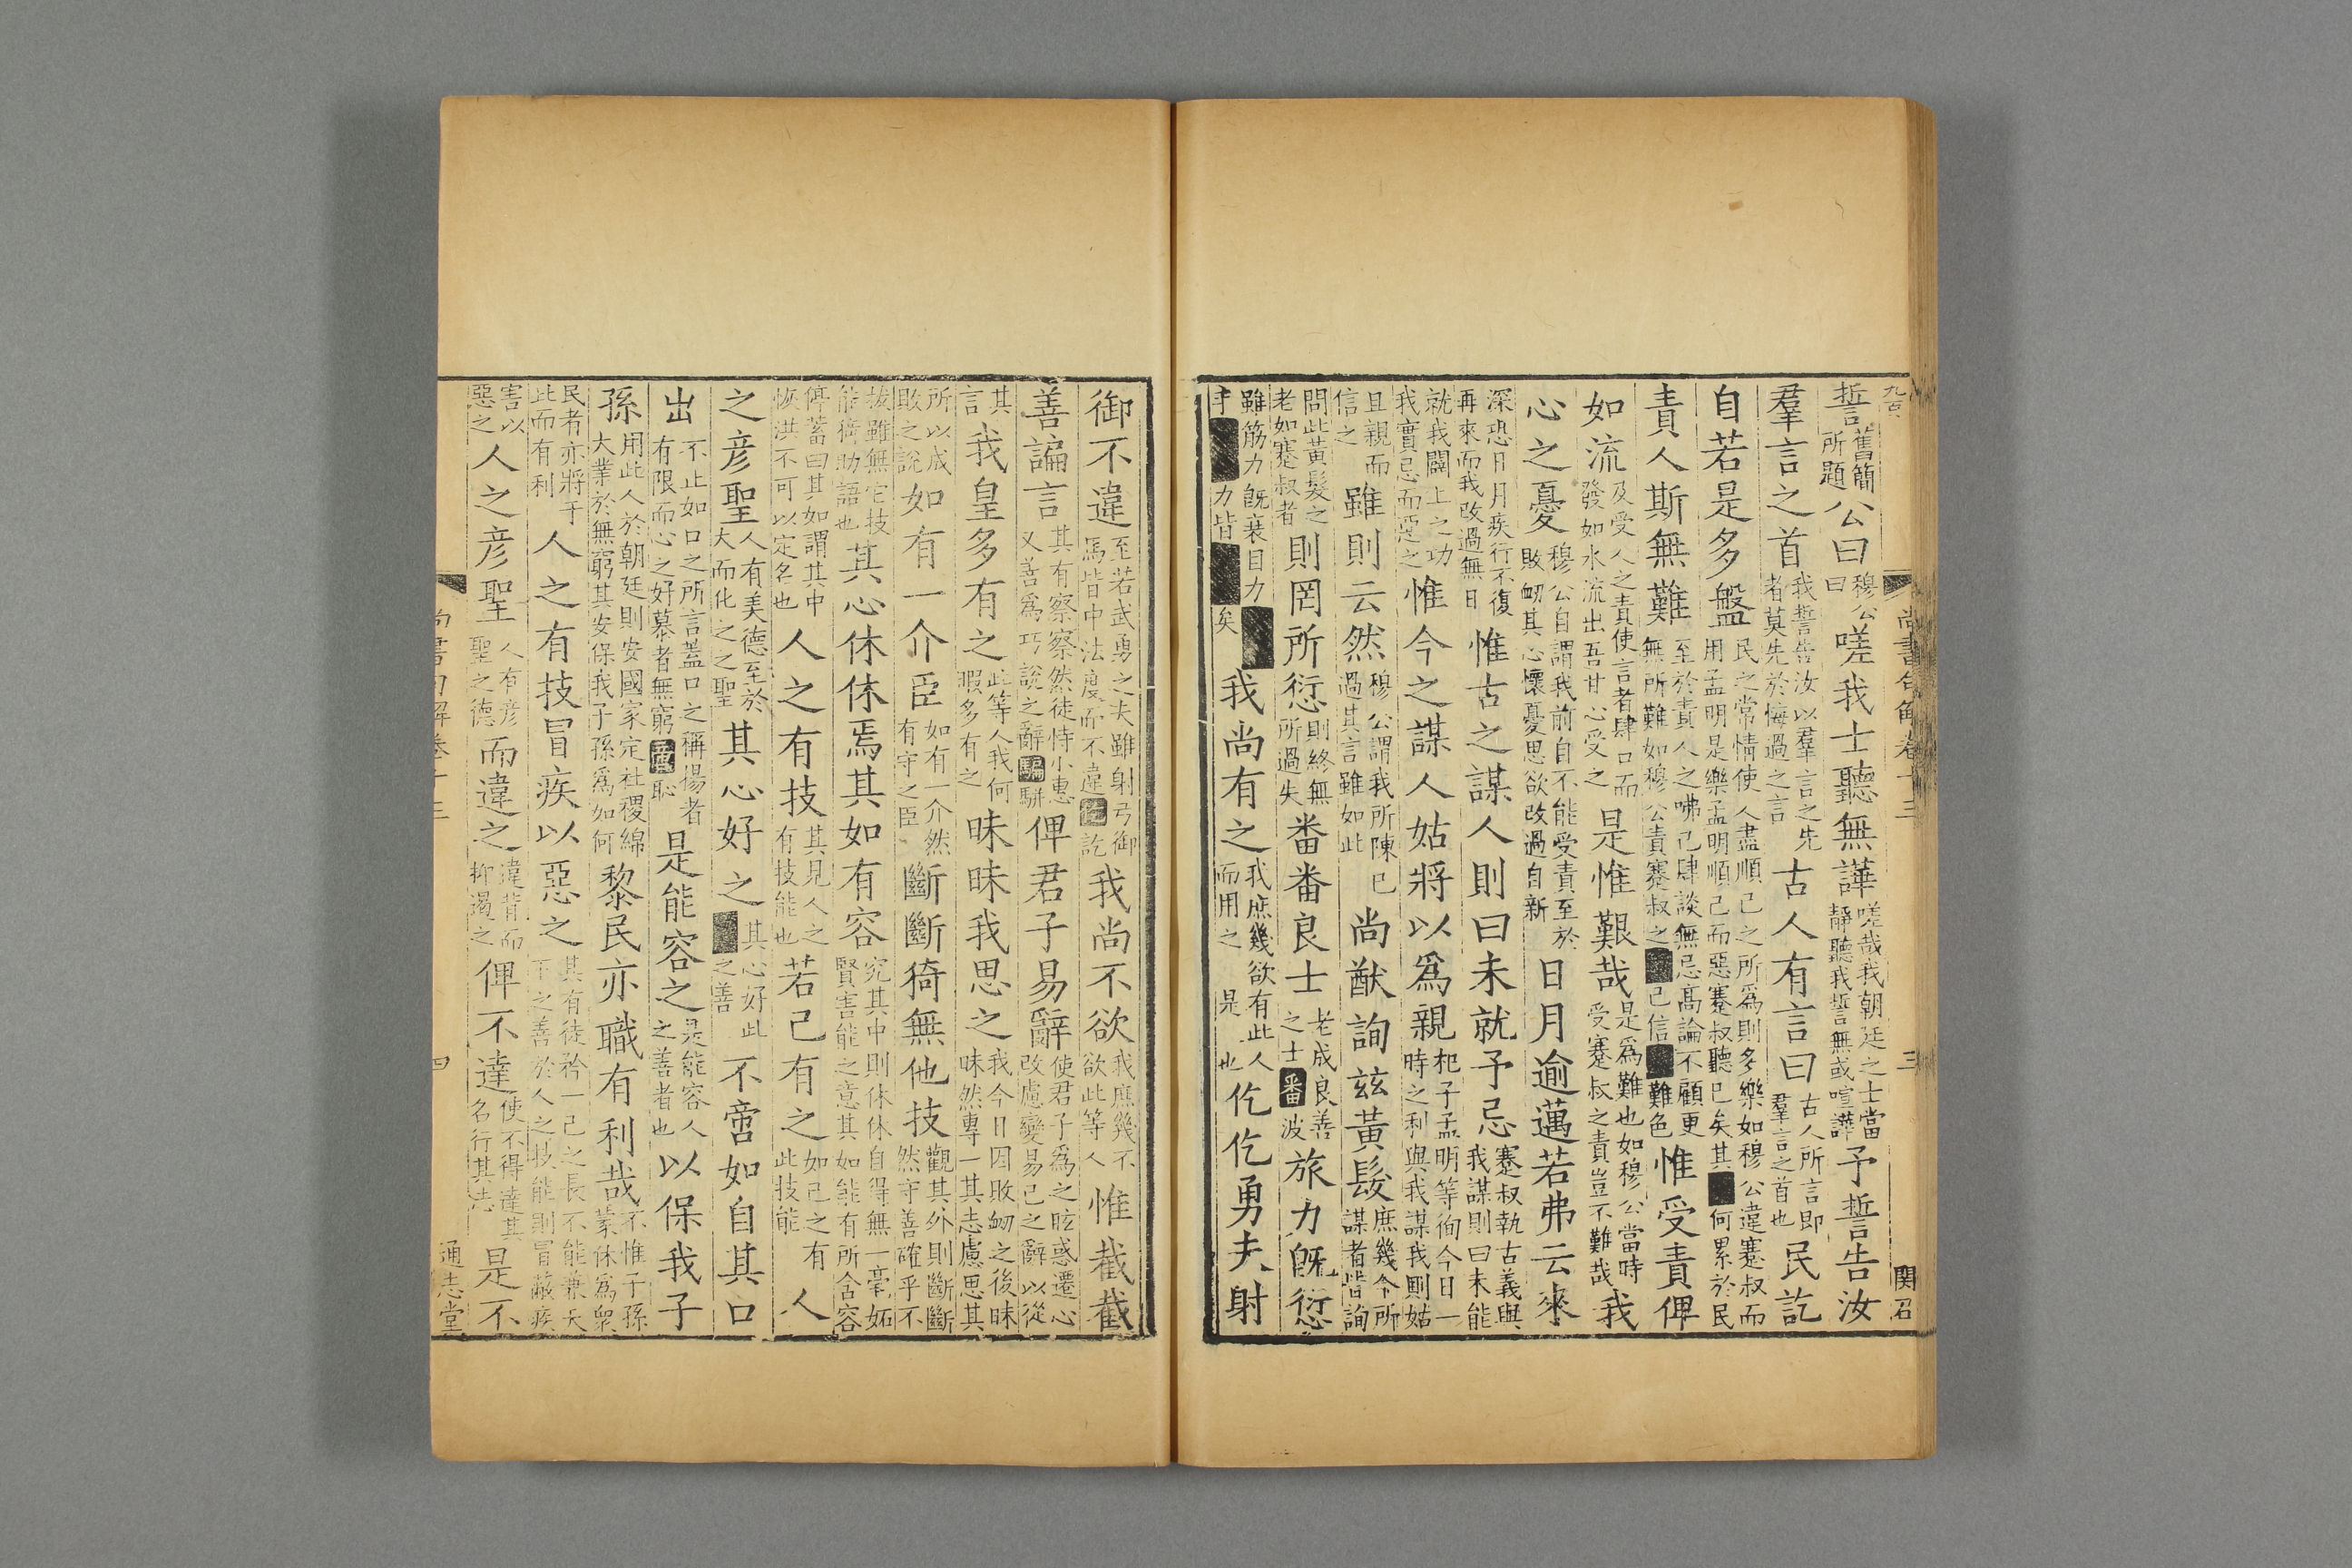 九百
尚書句解卷十三
三
関召
誓舊簡所題公曰穆公曰嗟我士聽無譁嗟哉我朝廷之士當靜聽我誓無或喧譁予誓告汝
羣言之首我誓告汝以羣言之先者莫先於悔過之言古人有言曰古人所言即羣言之首也民訖
自若是多盤民之常情使人盡順己之所爲則多樂如穆公違蹇叔而用孟明是樂孟明順己而惡蹇叔聽已矣其何累於民
責人斯無難至於責人之咈己肆談無忌高論不顧更無所難如穆公責蹇叔之己信難色惟受責俾
如流及受人之責使言者肆口而發如水流出吾甘心受之是惟艱哉是爲難也如穆公當時受蹇叔之責豈不難哉我
心之憂穆公自謂我前自不能受責至於敗衂其心懷憂思欲改過自新日月逾邁若弗云來
深恐日月疾行不復再來而我改過無日惟古之謀人則曰未就予忌蹇叔執古義與我謀則曰未能
就我闢土之功我實忌而惡之惟今之謀人姑將以爲親杞子孟明等徇今日一時之利與我謀我則姑
且親而信之雖則云然穆公謂我所陳已過其言雖如此尚猷詢茲黃髮庶幾今所謀者皆詢
問此黃髮之老如蹇叔者則罔所愆則終無所過失番番良士老成良善之士番波旅力旣愆
雖筋力旣衰目力手力皆矣我尚有之我庶幾欲有此人而用之是也仡仡勇夫射
御不違至若武勇之夫雖射弓御馬皆中法度而不違訖我尚不欲我庶幾不欲此等人惟截截
善諞言其有察察然徒恃小惠又善爲巧說之辭諞駢俾君子易辭使君子爲之眩惑遷心改慮變易己之辭以從
其言我皇多有之此等人我何暇多有之昧昧我思之我今日因敗衂之後昧昧然專一其志慮思其
所以成敗之說如有一介臣如有一介然有守之臣斷斷猗無他技觀其外則斷斷然守善確乎不
拔雖無它技能猗助語也其心休休焉其如有容究其中則休休自得無一毫妬賢害能之意其如能有所含容
停蓄曰其如謂其中恢洪不可以定名也人之有技其見人之有技能也若己有之如己之有此技能人
之彦聖人有美德至於大而化之之聖其心好之其心好此之善不啻如自其口
出不止如口之所言蓋口之稱揚者有限而心之好慕者無窮是能容之是能容人之善者也以保我子
孫用此人於朝廷則安國家定社稷綿大業於無窮其安保我子孫爲如何黎民亦職有利哉不惟子孫蒙休爲衆
民者亦將于此而有利人之有技冒疾以惡之其有徒矜一己之長不能兼天下之善於人之技能則冒蔽疾
害以惡之人之彦聖人有彦聖之德而違之違背而抑遏之俾不達使不得達其名行其志是不
尚書句解卷十三
四
通志堂